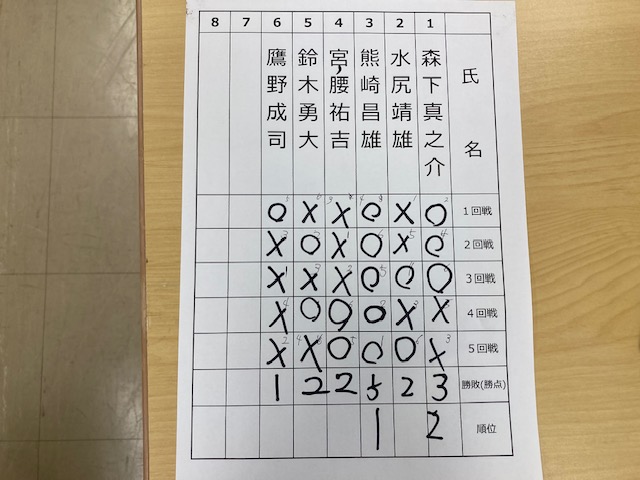 8 7 6 5 4 3 2 1
鷹野成司 鈴木勇大 宮腰祐吉 熊崎昌雄 水尻靖雄 森下真之介 氏名
○ × × ○ × ○ 1回戦
× ○ × ○ × ○ 2回戦
× × × ○ ○ ○ 3回戦
× ○ ○ ○ × × 4回戦
× × ○ ○ ○ × 5回戦
1 2 2 5 2 3 勝敗(勝点)
1 2 順位